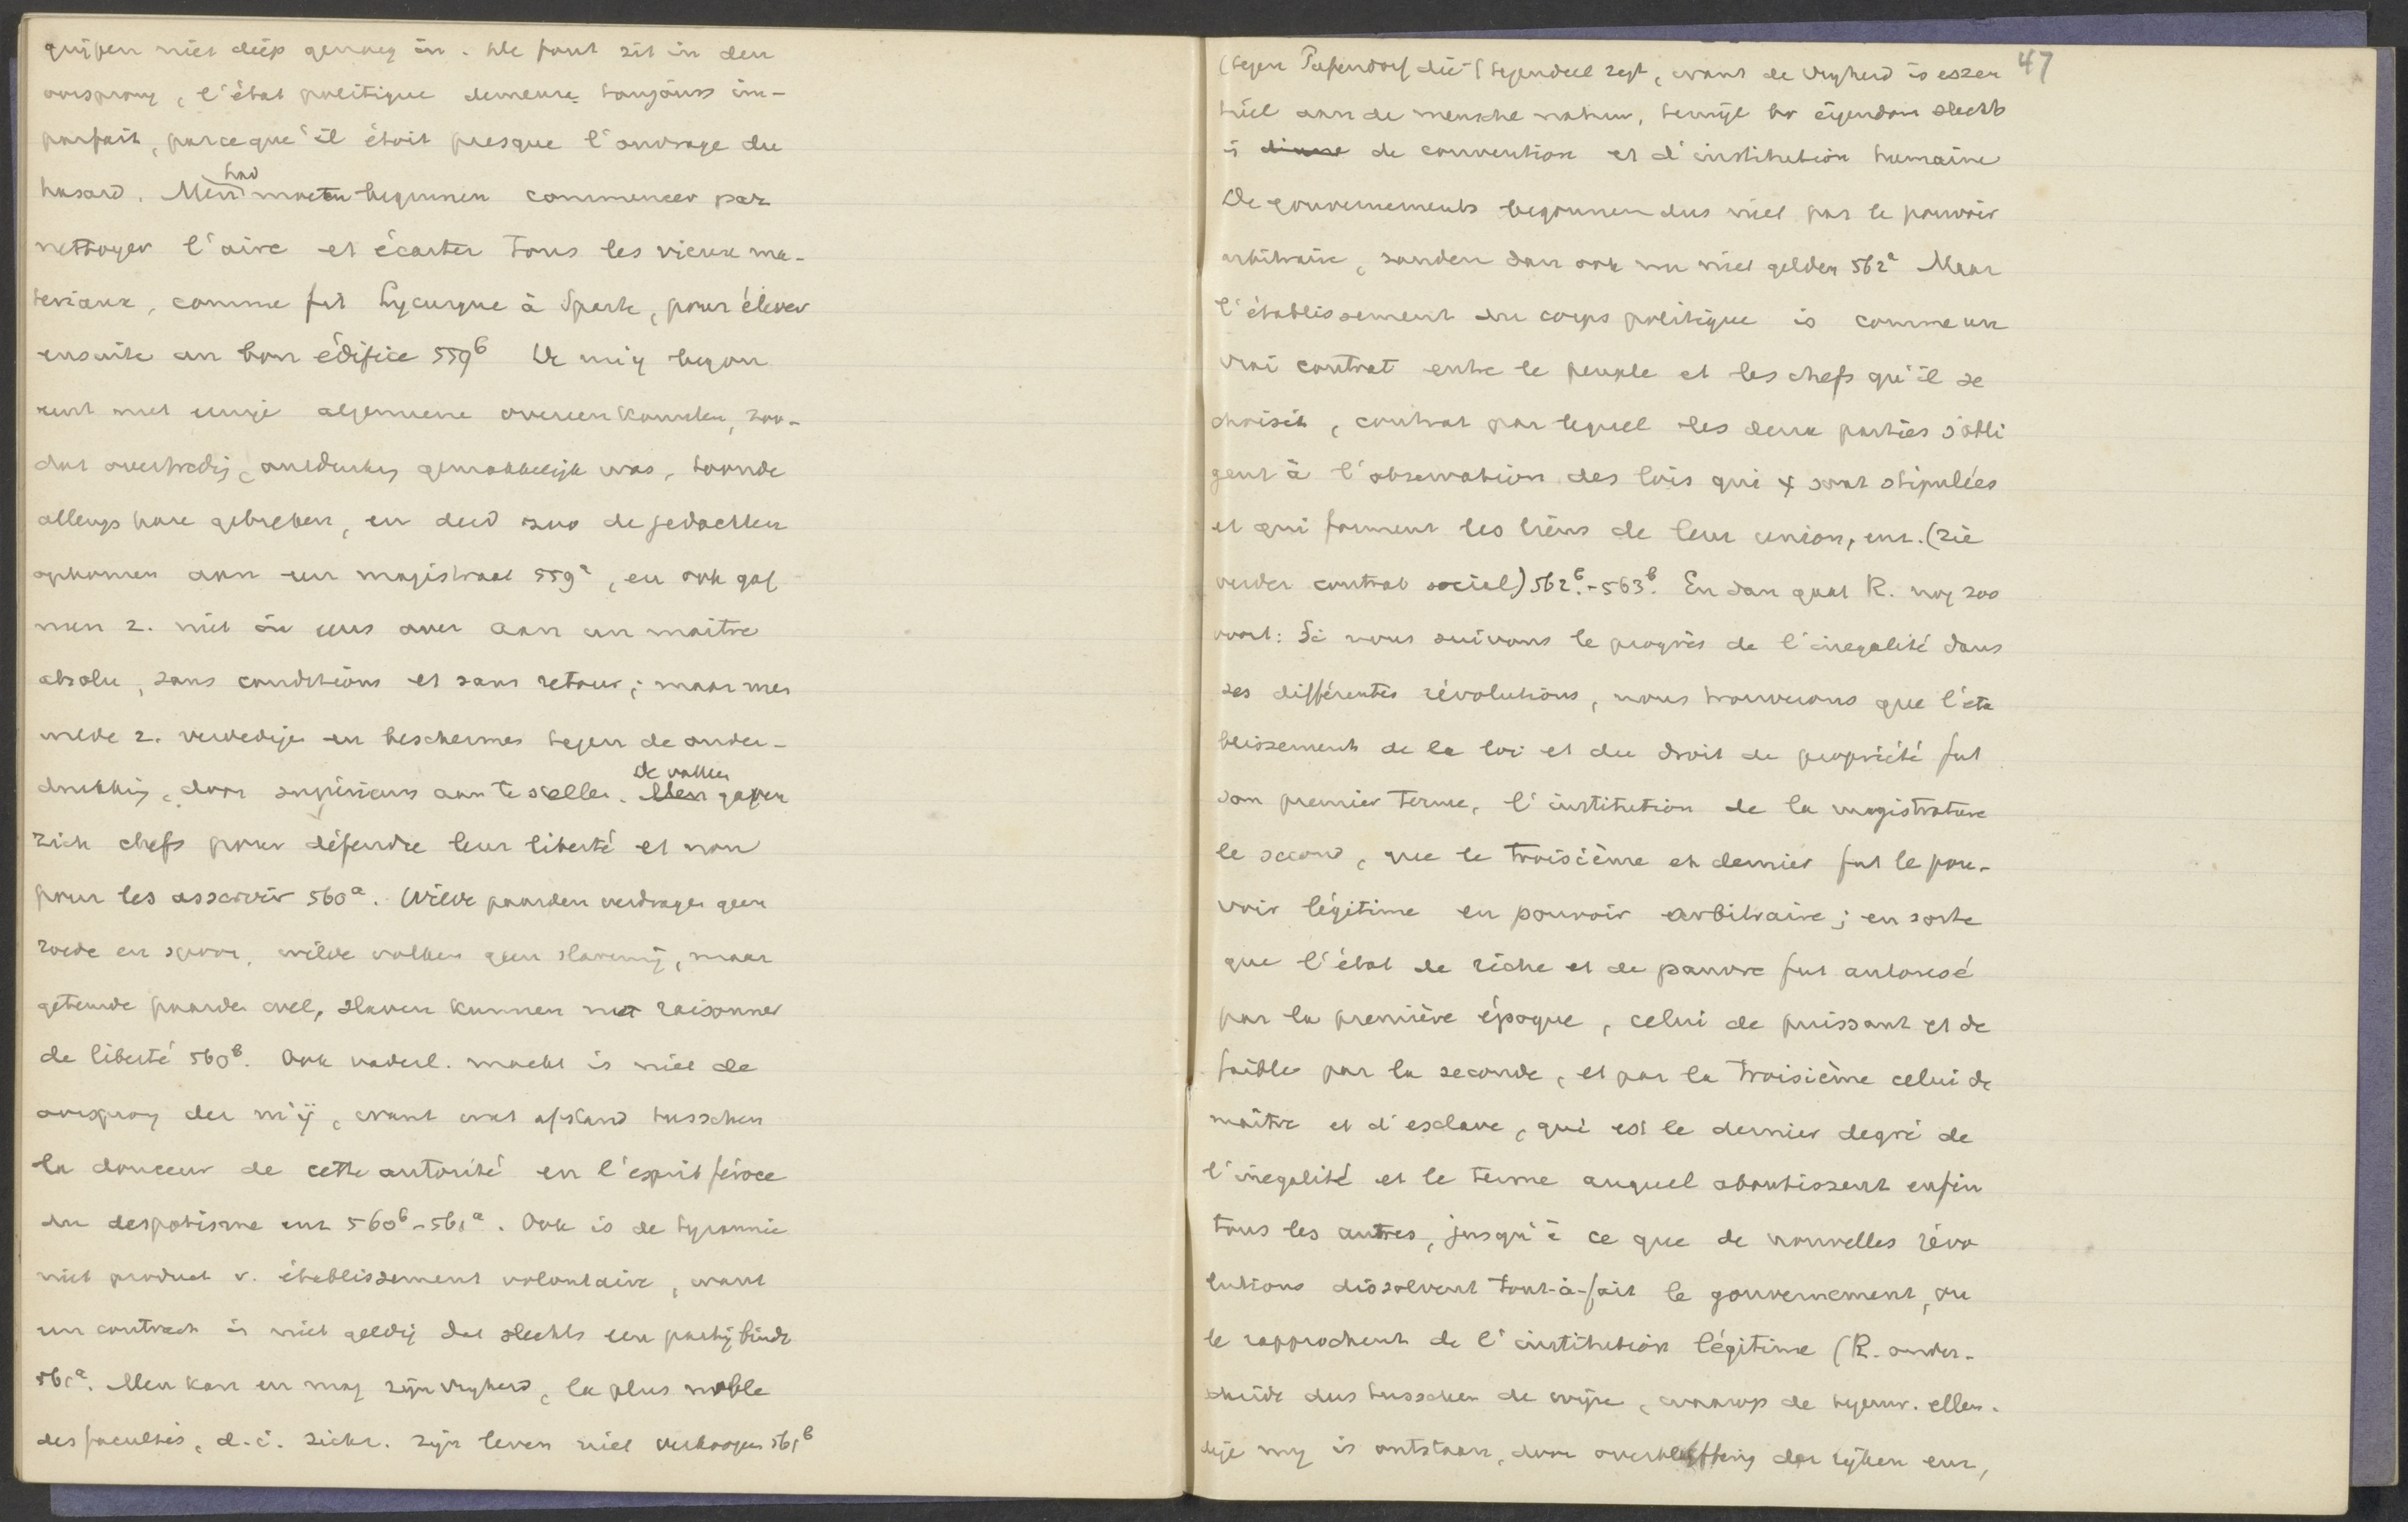 grijpen niet diep genoeg in. De fout zit in den
oorsprong, l'état politique demeure toujours im-
parfait, parceque'il étoit presque l'ouvrage du
hasard. Men had moeten beginnen commencer par
nettoyer l'aire et écarter tous les vieux ma-
teriaux, comme fit Lycurgue à Sparte, pour élever
ensuite un bon édifice 559b De mij begon
eerst met eenige algemeene overeenkomsten, zoo-
dat overtreding, ontduiking gemakkelijk was, toonde
allengs hare gebreken, en deed zoo de gedachten
opkomen aan een magistraat 559a, en ook gaf
men z. niet in eens over aan un maître
absolu, sans conditions et sans retour; maar men
wilde z. verdedigen en beschermen tegen de onder-
drukking, door supérieurs aan te stellen. Men de volken gaven
zich chefs pour défendre leur liberté et non
pour les asservir 560a. Wilde paarden verdragen geen
roede en spoor, wilde volken geen slavernij, maar
getemde paarden wel, slaven kunnen niet raisonner
de liberté 560b. Ook vaderl. macht is niet de
oorsprong der m'ij, want wat afstand tusschen
la douceur de cette autorité en l'esprit féroce
du despotisme enz 560b-561a. Ook is de tyrannie
niet product v. établissement volontaire, want
een contract is niet geldig dat slechts een partij bindt
561a. Men kan en mag zijn vrijheid, la plus noble
des facultés, d.i. zichz. zijn leven niet verkoopen 561b
47
(tegen Pufendorf die 't tegendeel zegt, want de vrijheid is essen
tiëel aan de mensche natuur, terwijl de eigendom slechts
is de convention et d'institution humaine
De gouvernements begonnen dus niet par le pouvoir
arbitraire, zouden dan ook nu niet gelden 562a Maar
l'établissement du corps politique is comme un
vrai contrat entre le peuple et les chefs qu'il se
choisit, contrat par lequel les deux parties s'obli
gent à l'observation des lois qui y sont stipulées
et qui forment les liens de leur union, enz. (zie
verder contrat social) 562b.-563b. En dan gaat R. nog zoo
voort: Si nous suivons le progrès de l'inegalité dans
ses différentes révolutions, nous trouverons que l'éta
blissement de la loi et du droit de propriété fut
son premier terme, l'institution de la magistrature
le second, que le troisième et dernier fut le pou-
voir légitime en pouvoir arbitraire; en sorte
que l'état de riche et de pauvre fut autorisé
par la première époque, celui de puissant et de
faible par la seconde, et par la troisième celui de
maître et d'esclave, qui est le dernier degré de
l'inegalité et le terme auquel aboutissent enfin
tous les autres, jusqu'à ce que de nouvelles révo
lutions dissolvent tout-à-fait le gouvernement, ou
le rapprochent de l'institution légitime (R. onder-
scheidt dus tusschen de wijze, waarop de tegenw. ellen-
dige mij is ontstaan, door overbluffing der rijken enz,